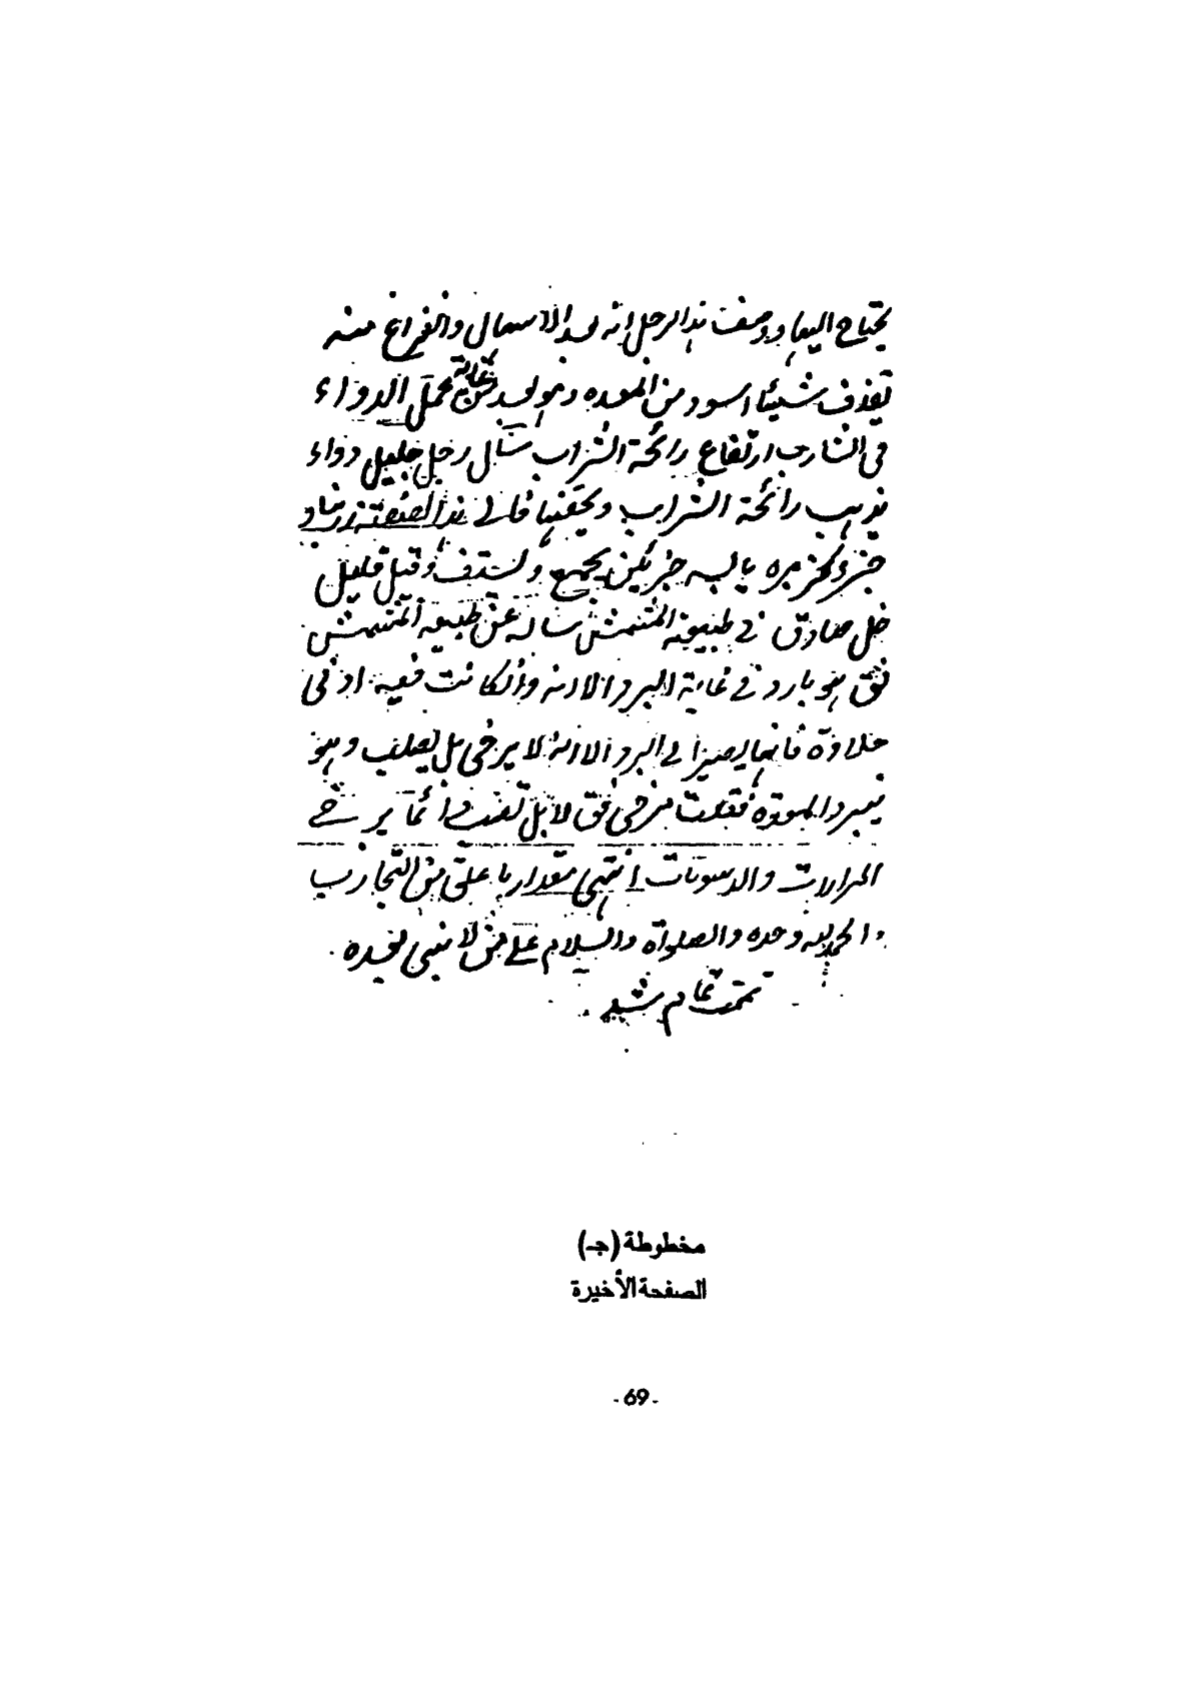 يحتاج اليها ووصف هذا الرجل انه بعد الاسهال والفراغ منه
يقذف شيئا اسود من المعده وهو بعد محمل الدواء
في الشارب ارتفاع رائحة الشراب سأل رجل جليل دواء
يذهب رائحة الشراب ويخفيها قال لي هذا الصفة زرنباد
جزو كزبره يابسه جزئين يجمع ويستف وقيل قليل
خل صادق في طبيعة المشمش سأله عن طبيعة المشمش
فق هو بارد في غاية البرد الا انه وان كانت فيه ادنى
حلاوة فانها يصير الى البرد الا انه لا يرخى بل يصلب وهو
يبرد المعدة فقلت يرخى فق لا بل تعفت دائما يرخى
المرارات والدسومات انتهى مقدار ما علق من التجارب
والحمد لله وحده والصلواة والسلام على من لا نبي بعده
تمت تمام شد
مخطوطة (جـ)
الصفحة الأخيرة
- 69 -